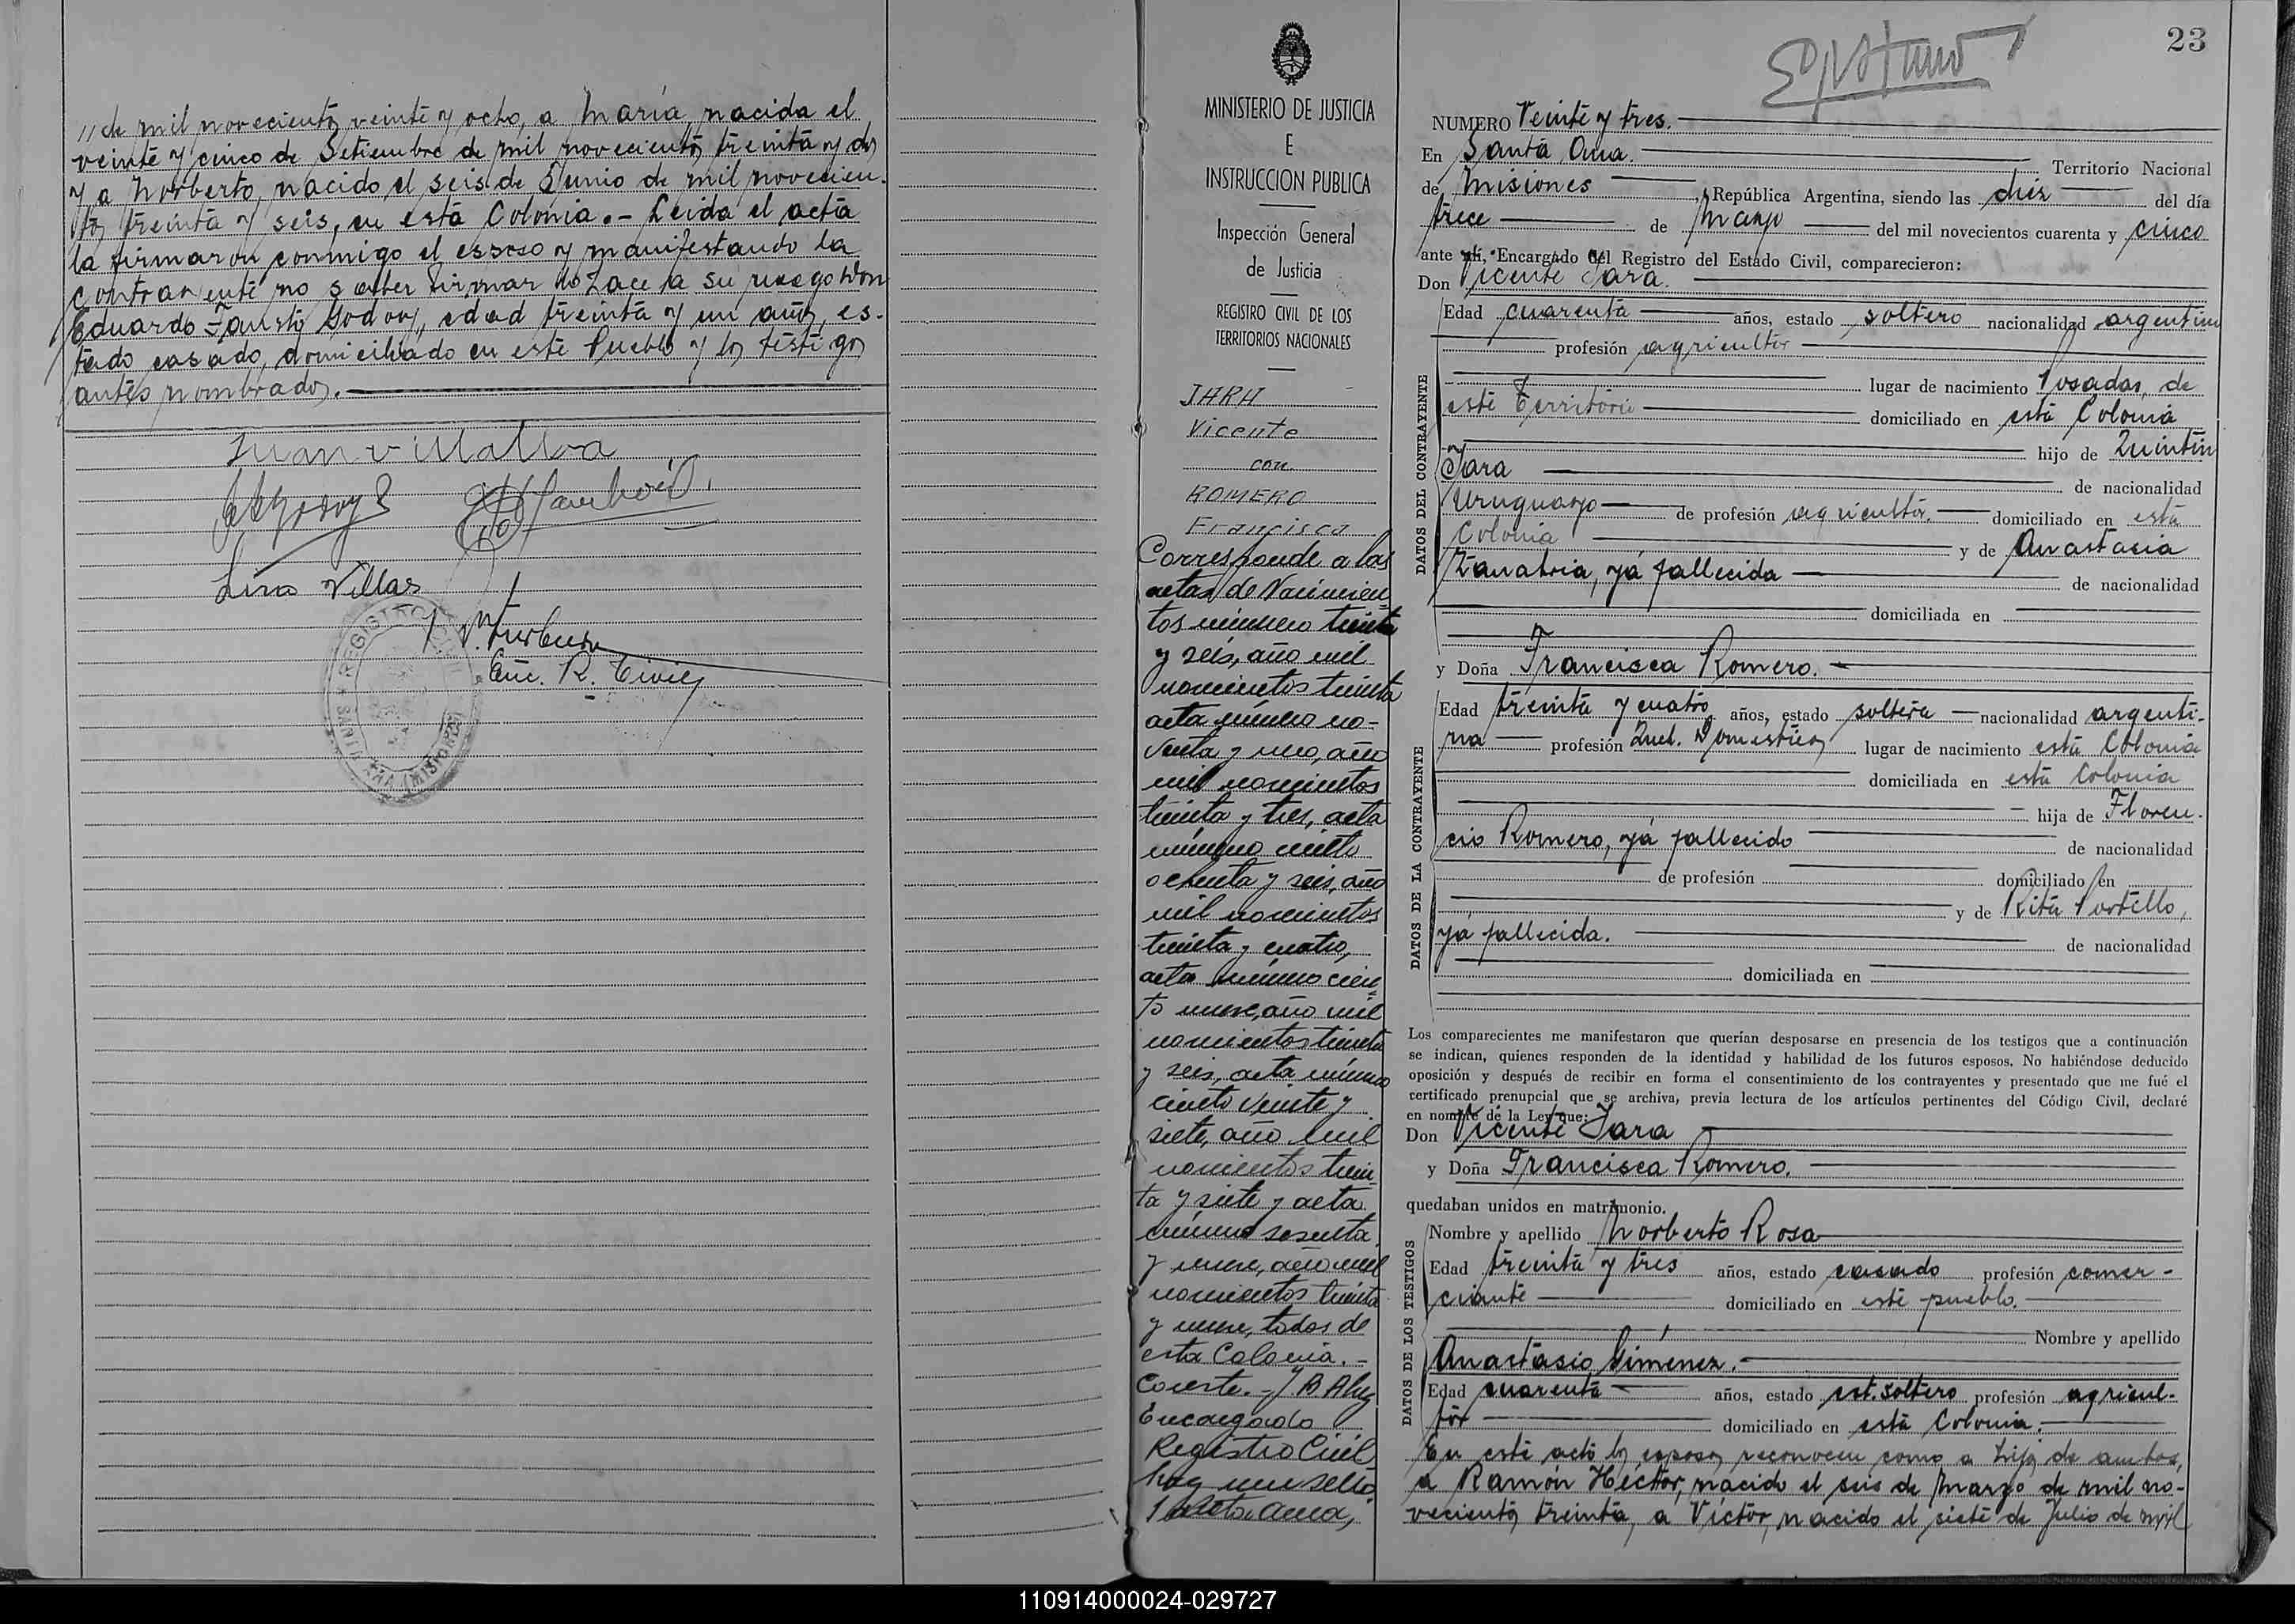 // de mil novecientos veinte y ocho, a María, nacida el
veinte y cinco de Setiembre de mil novecientos treinta y dos
y a Norberto, nacido el seis de Junio de mil novecien-
tos treinta y seis, en esta Colonia.- Leida el acta
la firmaron conmigo el esposo y manifestando la
contrayente no saber firmar lo hace a su ruego Don
Eduardo Fausto Godoy, edad treinta y un años, es-
tado casado, domiciliado en este Pueblo y los testigos
antes nombrados.
Juan Villalba
Lino Villar
Enc. R. Civil
REGISTRO CIVIL
SANTA ANA (MISIONES)
MINISTERIO DE JUSTICIA
E
INSTRUCCION PUBLICA
Inspección General
de Justicia
REGISTRO CIVIL DE LOS
TERRITORIOS NACIONALES
JARA
Vicente
con
ROMERO
Francisca
Corresponde a las
actas de Nacimien-
tos número treinta
y seis, año mil
novecientos treinta
acta número no-
venta y uno, año
mil novecientos
treinta y tres, acta
número ciento
ochenta y seis, año
mil novecientos
treinta y cuatro,
acta número cien-
to nueve, año mil
novecientos treinta
y seis, acta número
ciento veinte y
siete, año mil
novecientos trein-
ta y siete y acta
número sesenta
y nueve, año mil
novecientos treinta
y nueve, todos de
esta Colonia.-
Conste.-
Encargado
Registro Civil
hay un sello
Santa Ana,
23
NUMERO Veinte y tres.
En Santa Ana. Territorio Nacional
de Misiones, República Argentina, siendo las diez del día
trece de Marzo del mil novecientos cuarenta y cinco
ante mí, Encargado del Registro del Estado Civil, comparecieron:
Don Vicente Jara.
Edad cuarenta años, estado soltero nacionalidad argentino
profesión agricultor
lugar de nacimiento Posadas, de
este Territorio domiciliado en esta Colonia
hijo de Quintín
Jara de nacionalidad
Uruguayo de profesión agricultor. domiciliado en esta
Colonia y de Anastacia
Zanabria, yá fallecida de nacionalidad
domiciliada en
DATOS DEL CONTRAYENTE
y Doña Francisca Romero.
Edad treinta y cuatro años, estado soltera nacionalidad argenti-
na profesión Quel. Domesticos lugar de nacimiento esta Colonia
domiciliada en esta Colonia
hija de Floren-
cio Romero, yá fallecido de nacionalidad
de profesión domiciliado en
y de Rita Portillo,
yá fallecida. de nacionalidad
domiciliada en
DATOS DE LA CONTRAYENTE
Los comparecientes me manifestaron que querían desposarse en presencia de los testigos que a continuación
se indican, quienes responden de la identidad y habilidad de los futuros esposos. No habiéndose deducido
oposición y después de recibir en forma el consentimiento de los contrayentes y presentado que me fué el
certificado prenupcial que se archiva, previa lectura de los artículos pertinentes del Código Civil, declaré
en nombre de la Ley que:
Don Vicente Jara
y Doña Francisca Romero.
quedaban unidos en matrimonio.
Nombre y apellido Norberto Rosa
Edad treinta y tres años, estado casado profesión comer-
ciante domiciliado en este pueblo.
Nombre y apellido
Anastasio Giménez.
Edad cuarenta años, estado est. soltero profesión agricul-
tor domiciliado en esta Colonia.
DATOS DE LOS TESTIGOS
En este acto los esposos reconocen como a hijos de ambos,
a Ramón Hector, nacido el seis de Marzo de mil no-
vecientos treinta, a Víctor, nacido el siete de Julio de mil
110914000024-029727